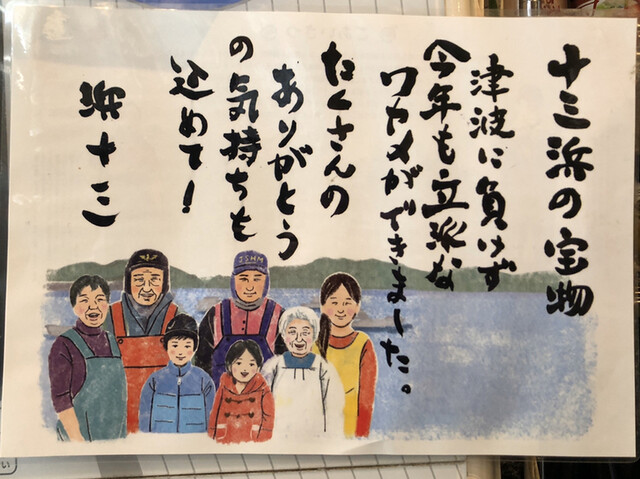 十三浜の宝物
津波に負けず
今年も立派な
ワカメができました。
たくさんの
ありがとう
の気持ちを
込めて！
浜十三
JSHM